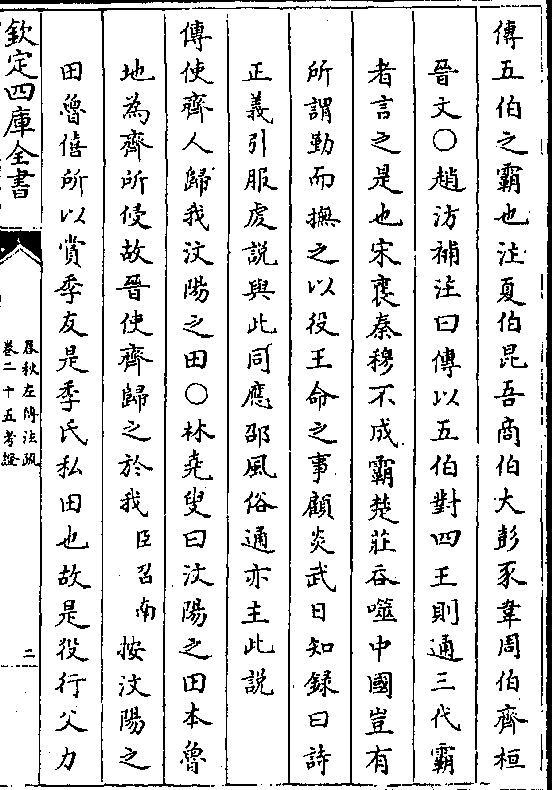 傳五伯之霸也注夏伯昆吾商伯大彭豕韋周伯齊桓
晉文○趙汸補注曰傳以五伯對四王則通三代霸
者言之是也宋襄秦穆不成霸楚莊吞噬中國豈有
所謂勤而撫之以役王命之事顧炎武日知録曰詩
正義引服虔説與此同應邵風俗通亦主此説
傳使齊人歸我汶陽之田○林堯叟曰汶陽之田本魯
地為齊所侵故晉使齊歸之於我臣召南按汶陽之
田魯僖所以賞季友是季氏私田也故是役行父力
欽定四庫全書
春秋左傳注疏
卷二十五考證
二